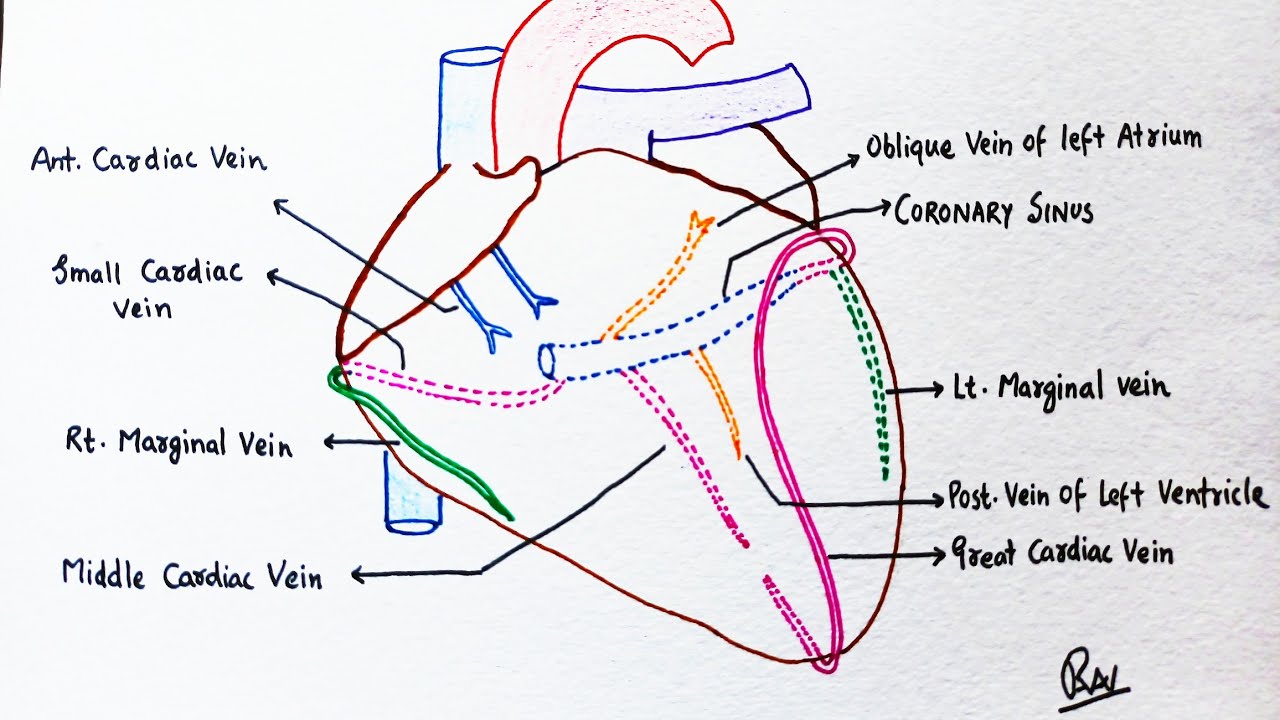 Ant. Cardiac Vein
Small Cardiac
Vein
Rt. Marginal Vein
Middle Cardiac Vein
Oblique Vein of left Atrium
CORONARY SINUS
Lt. Marginal vein
Post. Vein Of Left Ventricle
Great Cardiac Vein
RAI